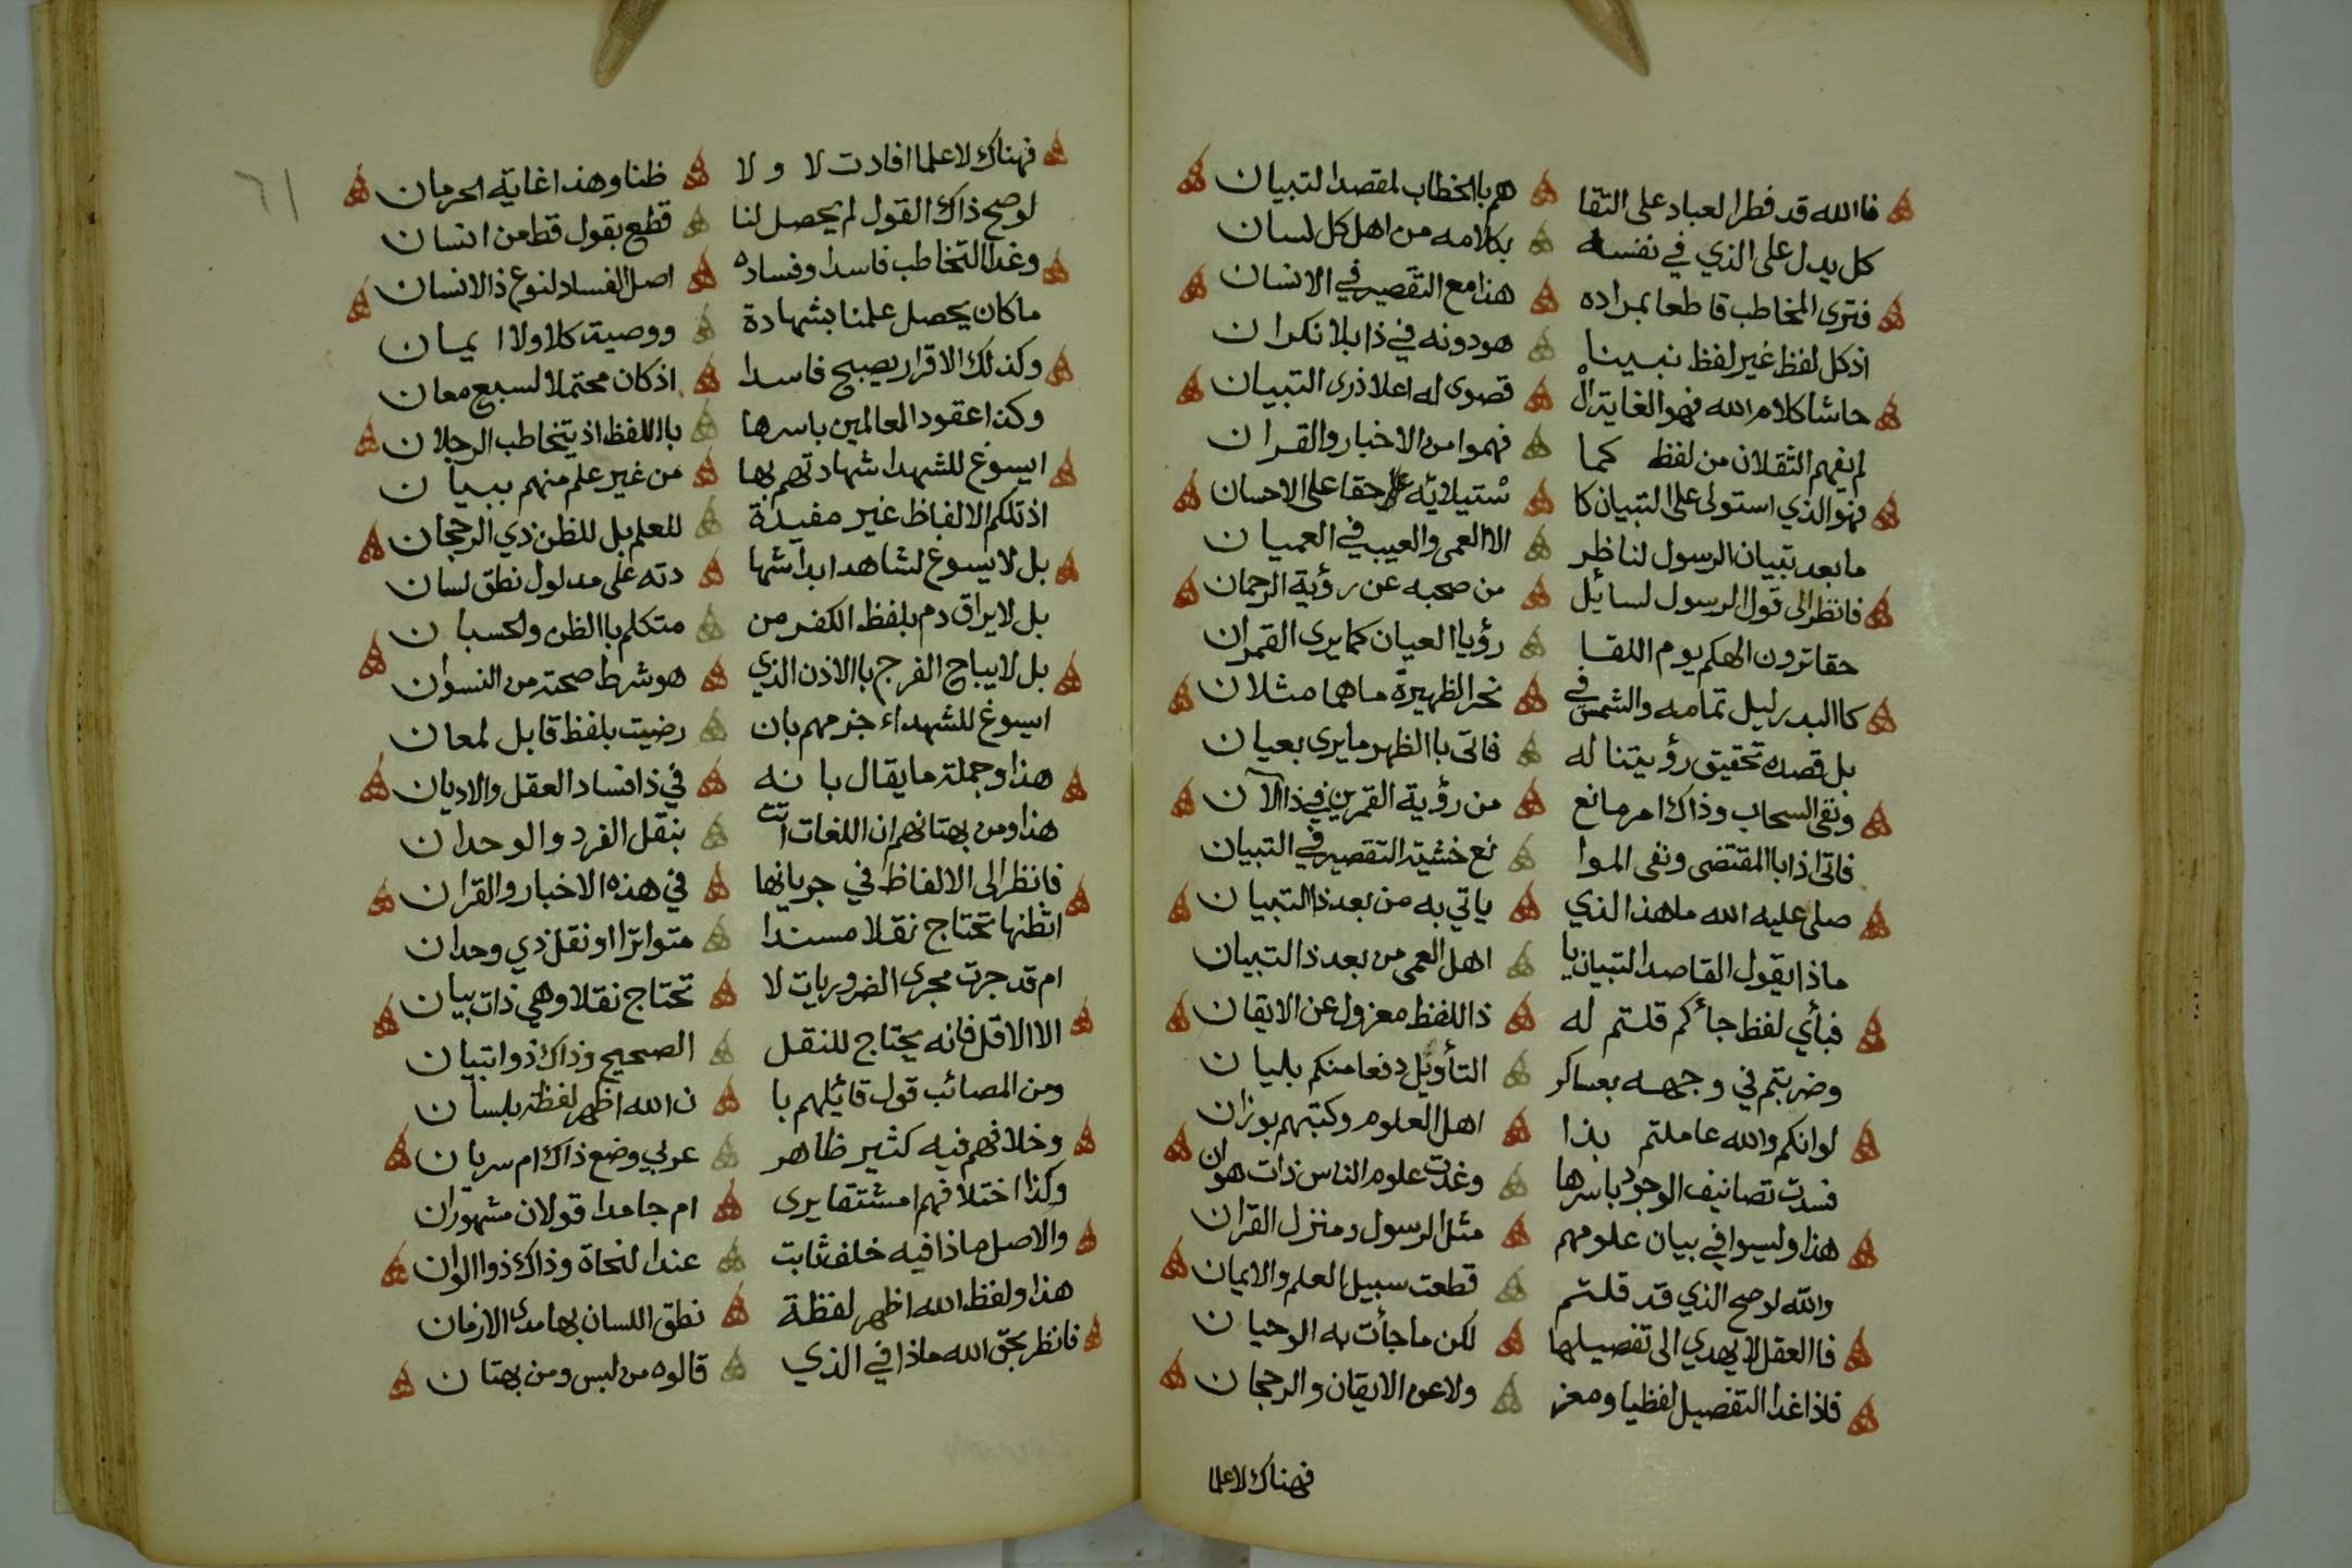 فاالله قد فطر العباد على التفا هم باالخطاب لمقصد التبيان
كل يدل على الذي في نفسه بكلامه من اهل كل لسان
فترى المخاطب قاطعا بمراده هذا مع التقصير في الانسان
اذ كل لفظ غير لفظ نبينا هو دونه في ذا بلا نكران
حاشا كلام الله فهو الغاية ال قصوى له اعلا ذرى التبيان
لم يفهم الثقلان من لفظ كما فهموا من الاخبار والقران
فهو الذي استولى على التبيان كا ستيلائه حقا على الاحسان
ما بعد تبيان الرسول لناظر الا العمى والعيب في العميان
فانظر الى قول الرسول لسائل من صحبه عن رؤية الرحمان
حقا ترون الهكم يوم اللقا رؤيا العيان كما يرى القمران
كاالبدر ليل تمامه والشمس في نحر الظهيرة ما هما مثلان
بل قصده تحقيق رؤيتنا له فاتى باالظهر ما يرى بعيان
ونفى السحاب وذاك امر مانع من رؤية القمرين في ذا الآن
فاتى اذا باالمقتضى ونفى الموا نع خشية التقصير في التبيان
صلى عليه الله ما هذا الذي ياتي به من بعد ذا التبيان
ماذا يقول القاصد التبيان يا اهل العمى من بعد ذا التبيان
فبأي لفظ جأكم قلتم له ذا اللفظ معزول عن الايقان
وضربتم في وجهه بعساكر التأويل دفعا منكم بليان
لو انكم والله عاملتم بذا اهل العلوم وكتبهم بوزان
فسدت تصانيف الوجود باسرها وغدت علوم الناس ذات هوان
هذا وليسوا في بيان علومهم مثل الرسول ومنزل القران
والله لو صح الذي قد قلتم قطعت سبيل العلم والايمان
فاالعقل لا يهدي الى تفصيلها لكن ما جأت به الوحيان
فاذا غدا التفصيل لفظيا ومعز ولا عن الايقان والرجحان
فهناك لا علما
٦١
فهناك لا علما افادت لا ولا ظنا وهذا غاية الحرمان
لو صح ذاك القول لم يحصل لنا قطع بقول قط من انسان
وغدا التخاطب فاسدا وفساده اصل الفساد لنوع ذا الانسان
ما كان يحصل علمنا بشهادة ووصية كلا ولا ايمان
وكذلك الاقرار يصبح فاسدا اذ كان محتملا لسبع معان
وكذا عقود العالمين باسرها باللفظ اذ يتخاطب الرجلان
ايسوغ للشهدا شهادتهم بها من غير علم منهم ببيان
اذ تلكم الالفاظ غير مفيدة للعلم بل للظن ذي الرجحان
بل لا يسوغ لشاهد ابدا شها دته على مدلول نطق لسان
بل لا يراق دم بلفظ الكفر من متكلم باالظن والحسبان
بل لا يباح الفرج باالاذن الذي هو شرط صحته من النسوان
ايسوغ للشهداء جزمهم بان رضيت بلفظ قابل لمعان
هذا وجملة ما يقال بانه في ذا فساد العقل والاديان
هذا ومن بهتانهم ان اللغات اتت بنقل الفرد والوحدان
فانظر الى الالفاظ في جريانها في هذه الاخبار والقران
اتظنها تحتاج نقلا مسندا متواترا او نقل ذي وحدان
ام قد جرت مجرى الضروريات لا تحتاج نقلا وهي ذات بيان
الا الاقل فانه يحتاج للنقل الصحيح وذاك ذو اتبيان
ومن المصائب قول قائلهم با ن الله اظهر لفظة بلسان
وخلافهم فيه كثير ظاهر عربي وضع ذاك ام سريان
وكذا اختلافهم امشتقا يرى ام جامدا قولان مشهوران
والاصل ماذا فيه خلف ثابت عند النحاة وذاك ذو االوان
هذا ولفظ الله اظهر لفظة نطق اللسان بها مدى الازمان
فانظر بحق الله ماذا في الذي قالوه من لبس ومن بهتان